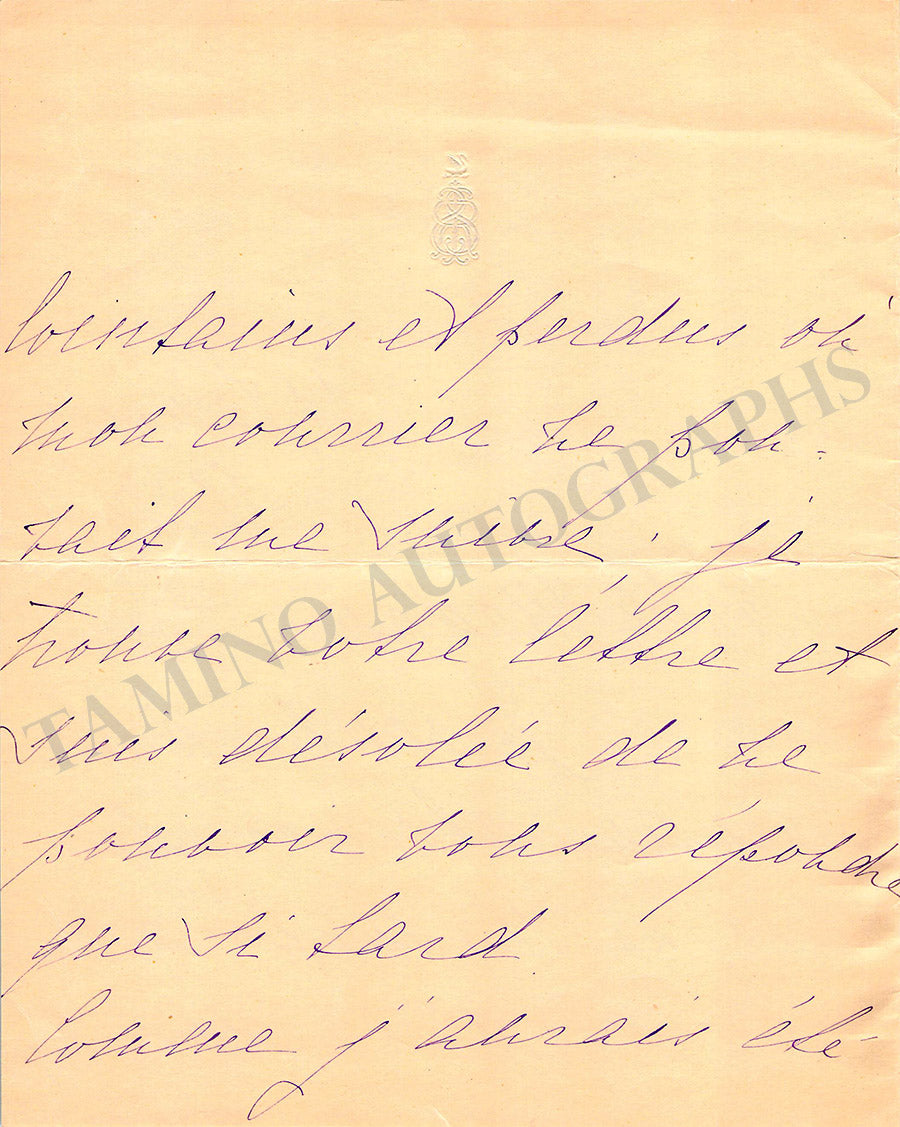 lointains et perdus où
mon courrier ne pou-
vait me suivre ; je
trouve votre lettre et
suis désolée de ne
pouvoir vous répondre
que si tard
Comme j'aurais été
TAMINO AUTOGRAPHS